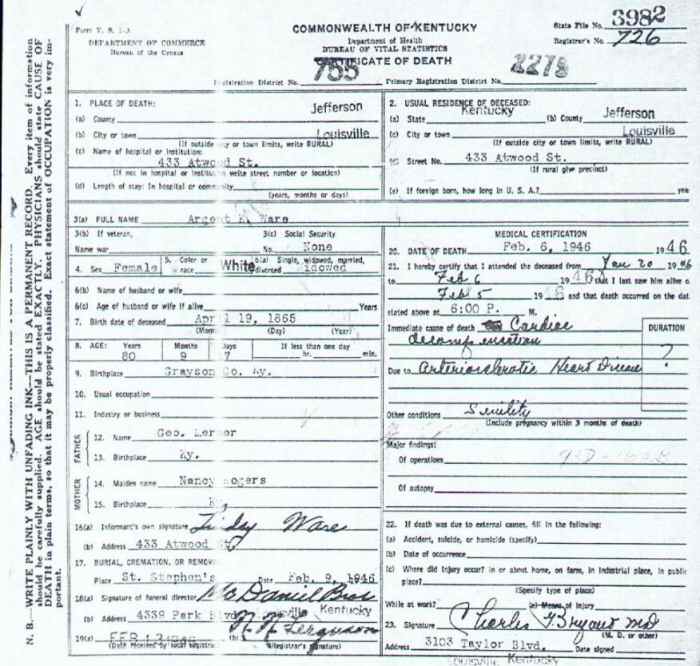 Form V. S. 1-3
DEPARTMENT OF COMMERCE
Bureau of the Census
COMMONWEALTH OF KENTUCKY
Department of Health
BUREAU OF VITAL STATISTICS
CERTIFICATE OF DEATH
State File No. 3982
Registrar's No. 726
Registration District No. 755 Primary Registration District No. 2275
N. B.—WRITE PLAINLY WITH UNFADING INK—THIS IS A PERMANENT RECORD. Every item of information
should be carefully supplied. AGE should be stated EXACTLY. PHYSICIANS should state CAUSE OF
DEATH in plain terms, so that it may be properly classified. Exact statement of OCCUPATION is very im-
portant.
1. PLACE OF DEATH:
(a) County Jefferson
(b) City or town Louisville
(If outside city or town limits, write RURAL)
(c) Name of hospital or institution:
433 Atwood St.
(If not in hospital or institution write street number or location)
(d) Length of stay: In hospital or community
(years, months or days)
2. USUAL RESIDENCE OF DECEASED:
(a) State Kentucky (b) County Jefferson
(c) City or town Louisville
(If outside city or town limits, write RURAL)
Street No. 433 Atwood St.
(If rural give precinct)
(e) If foreign born, how long in U. S. A.? yea
3(a) FULL NAME Argent Ware
3(b) If veteran,
Name war
3(c) Social Security
No. None
4. Sex Female 5. Color or race White 6(a) Single, widowed, married, divorced idowed
6(b) Name of husband or wife
6(c) Age of husband or wife if alive Years
7. Birth date of deceased April 19, 1865
(Month) (Day) (Year)
8. AGE: Years Months Days If less than one day
80 9 7 hr. min.
9. Birthplace Grayson Co. Ky.
10. Usual occupation
11. Industry or business
FATHER
12. Name Geo.
13. Birthplace Ky.
MOTHER
14. Maiden name Nancy ogers
15. Birthplace K
16(a) Informant's own signature Ware
(b) Address 433 Atwood St
17. BURIAL, CREMATION, OR REMOVAL
Place St. Stephen's Date Feb. 9, 1946
18(a) Signature of funeral director McDaniel Bros
(b) Address 4339 Park Blvd Louisville Kentucky
19(a) FEB (b) Ferguson
(Date received by local registrar) (Registrar's signature)
MEDICAL CERTIFICATION
20. DATE OF DEATH Feb. 6, 1946 1946
21. I hereby certify that I attended the deceased from Jan 20 1946
to Feb 6 1946 that I last saw him alive o
Feb 5 1946 and that death occurred on the dat
stated above at 6:00 P. M.
Immediate cause of death Cardiac
decompensation
DURATION
?
Due to Arteriosclerotic Heart Disease
Other conditions Senility
(Include pregnancy within 3 months of death)
Major findings:
Of operations
Of autopsy
22. If death was due to external causes, fill in the following:
(a) Accident, suicide, or homicide (specify)
(b) Date of occurrence
(c) Where did injury occur? in or about home, on farm, in industrial place, in public
place?
(Specify type of place)
While at work? (e) Means of injury
23. Signature Charles Bryant MD
(M. D. or other)
Address 3103 Taylor Blvd. Date signed
Louisville Kentucky